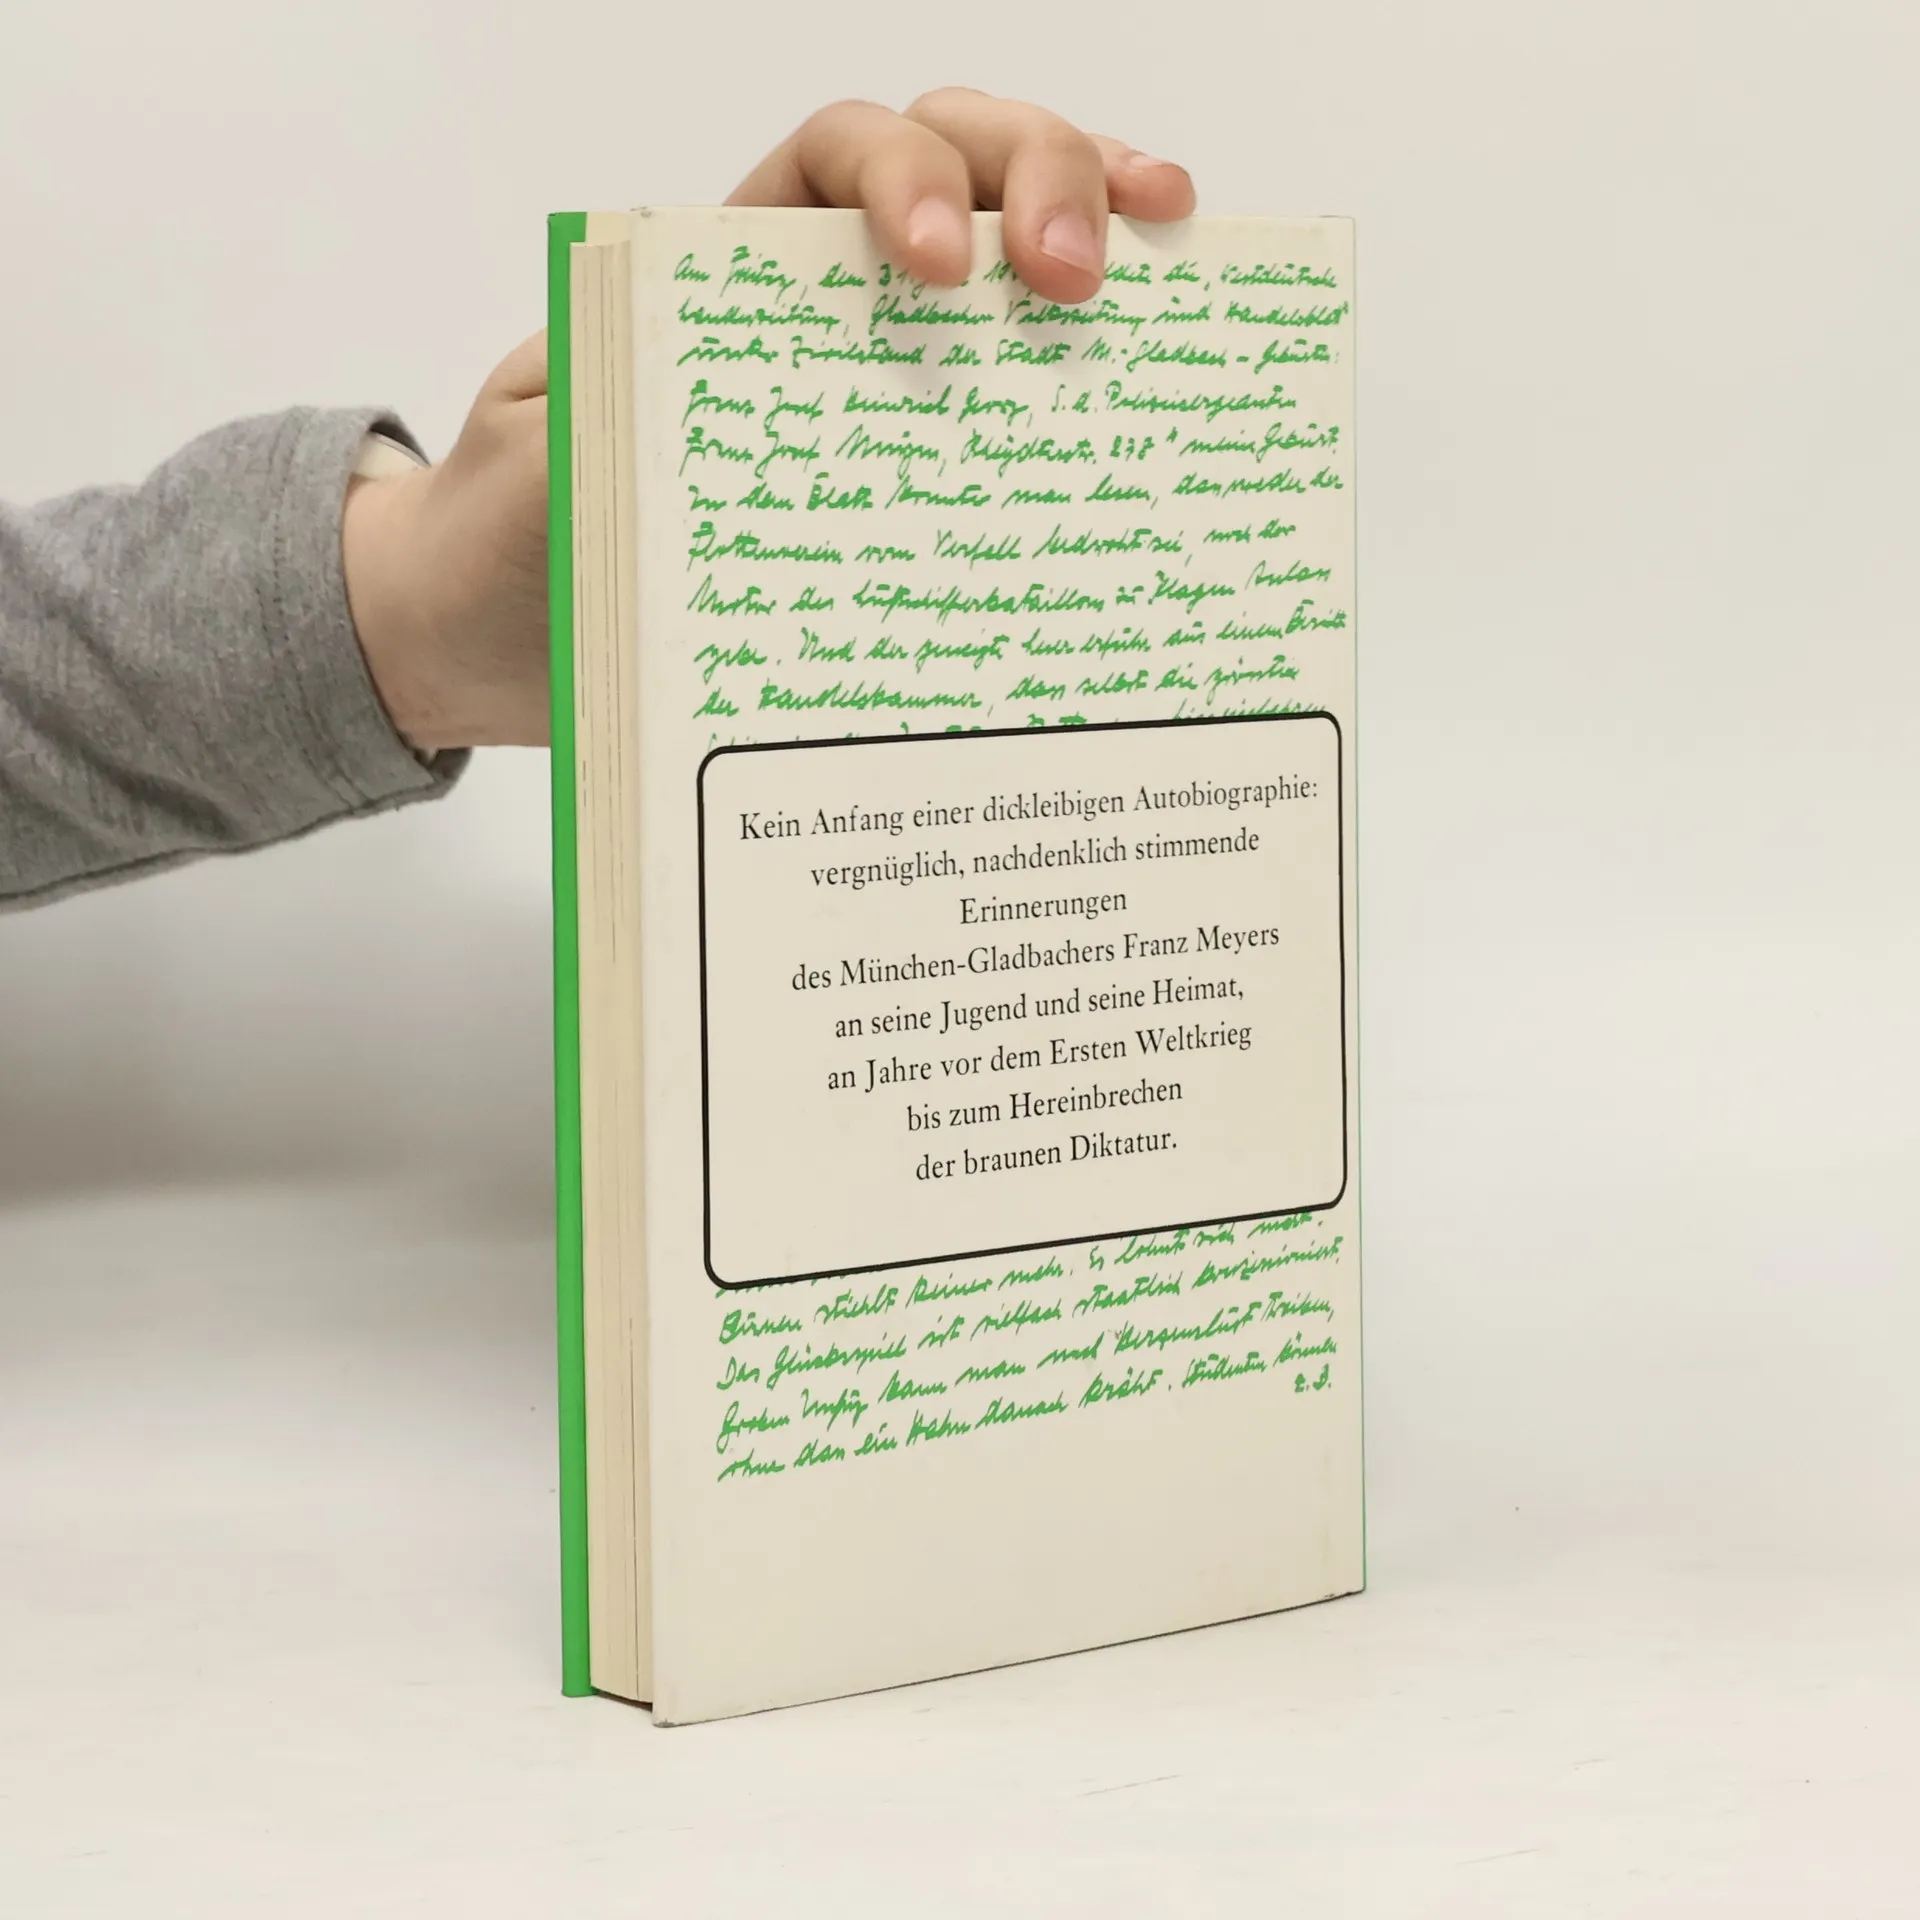 Am Freitag, dem 31. die „Westdeutsche
Landeszeitung, Gladbacher Volkszeitung und Handelsblatt"
unter Zivilstand der Stadt M.-Gladbach – Geburten:
Franz Josef Heinrich Georg, S. d. Polizeisergeanten
Franz Josef Meyers, Rheydterstr. 238" meine Geburt.
In dem Blatt konnte man lesen, dass weder der
Flottenverein vom Verfall bedroht sei, noch der
Motor des Luftschifferbataillons zu Klagen Anlass
gebe. Und der geneigte Leser erfuhr aus einem Bericht
der Handelskammer, dass selbst die
Kein Anfang einer dickleibigen Autobiographie:
vergnüglich, nachdenklich stimmende
Erinnerungen
des München-Gladbachers Franz Meyers
an seine Jugend und seine Heimat,
an Jahre vor dem Ersten Weltkrieg
bis zum Hereinbrechen
der braunen Diktatur.
Birnen stiehlt keiner mehr. Es lohnt sich nicht.
Das Glücksspiel ist vielfach staatlich konzessioniert.
Groben Unfug kann man nach Herzenslust treiben,
ohne dass ein Hahn danach kräht. Studenten können
z. B.